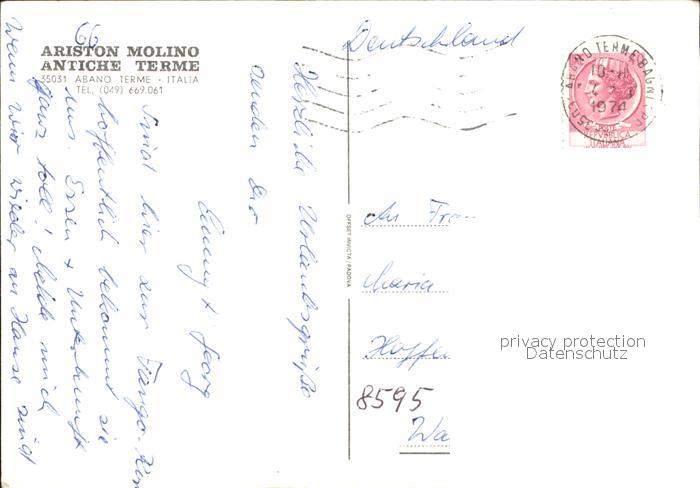 ARISTON MOLINO
ANTICHE TERME
35031 ABANO TERME · ITALIA
TEL. (049) 669.061
Deutschland
ABANO TERME BAGNI
1974
REPVBBLICA
ITALIANA
Herzliche Urlaubsgrüße
senden Dir
Emmy + Georg
Sind hier zur Fango-Kur
hoffentlich bekommt sie
uns. Essen + Unterkunft
ganz toll! Melde mich
wenn wir wieder zu Hause sind
OFFSET INVICTA / PADOVA
An Frau
Maria
Hoffe
8595
Wa
privacy protection
Datenschutz